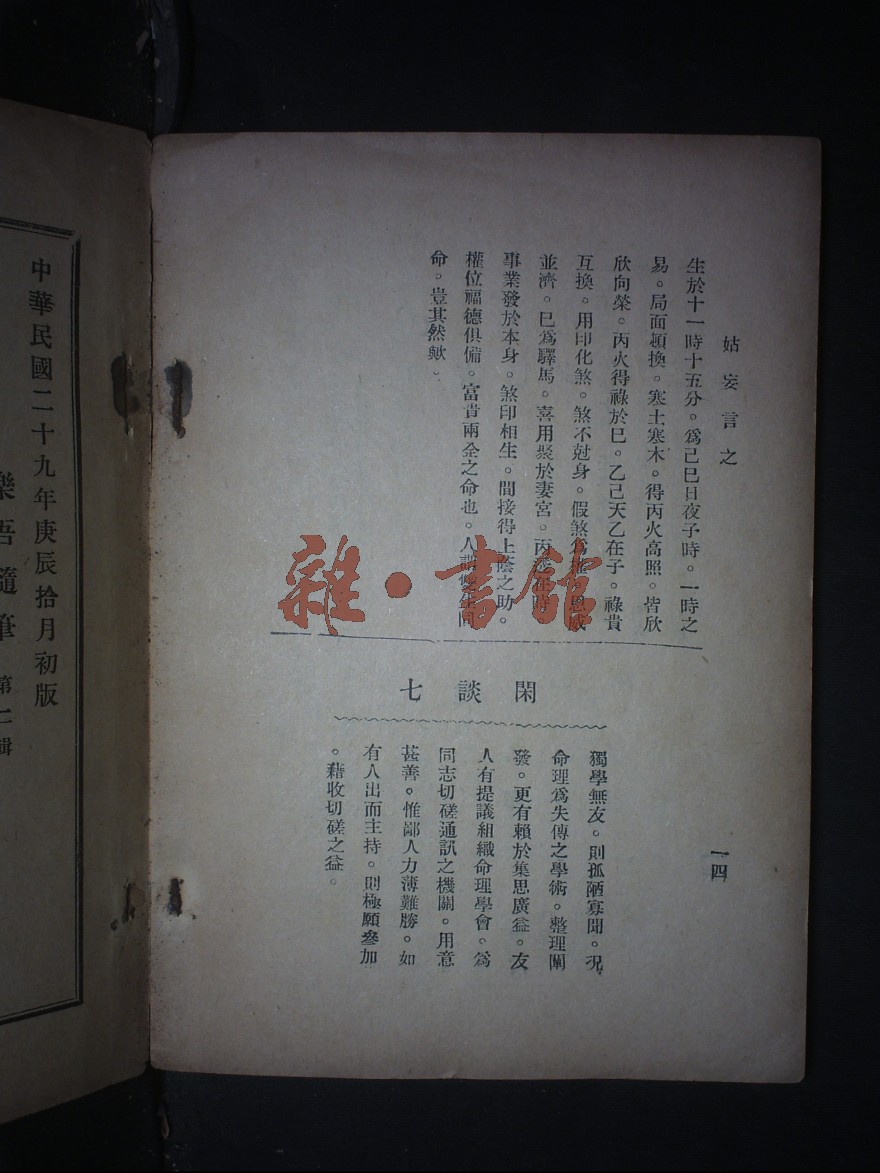 姑妄言之
一四
生於十一時十五分。爲己巳日夜子時。一時之
易。局面頓換。寒土寒木。得丙火高照。皆欣
欣向榮。丙火得祿於巳。乙己天乙在子。祿貴
互換。用印化煞。煞不尅身。假煞爲權。恩威
並濟。巳爲驛馬。喜用聚於妻宮。丙透在時
事業發於本身。煞印相生。間接得上蔭之助。
權位福德俱備。富貴兩全之命也。人謂雙生同
命。豈其然歟。
閑談七
獨學無友。則孤陋寡聞。況
命理爲失傳之學術。整理闡
發。更有賴於集思廣益。友
人有提議組織命理學會。爲
同志切磋通訊之機關。用意
甚善。惟鄙人力薄難勝。如
有人出而主持。則極願參加
。藉收切磋之益。
中華民國二十九年庚辰拾月初版
樂吾隨筆 第二輯
雜·書館